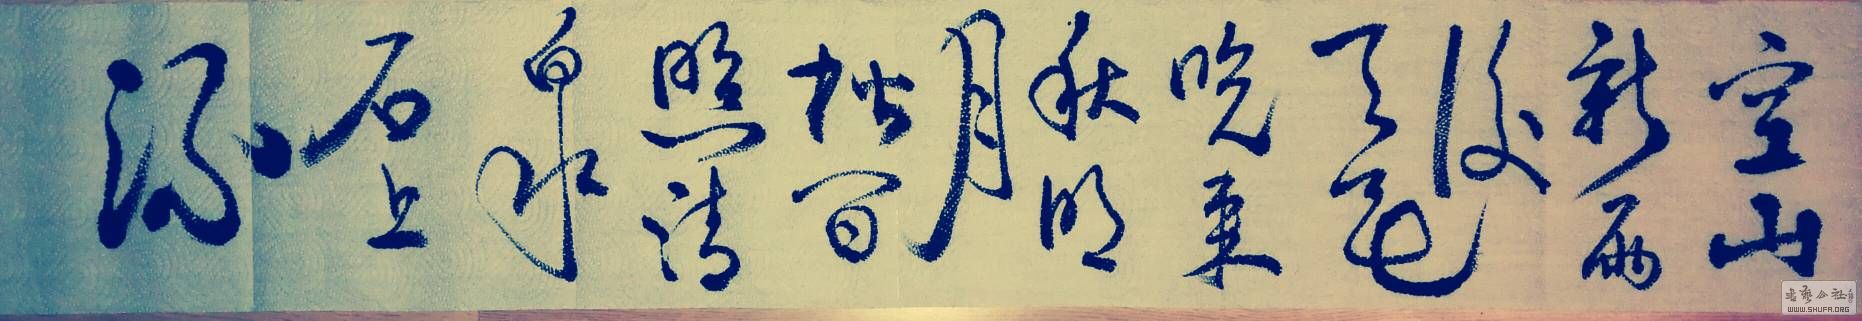 空山
新雨
後
天氣
晚來
秋明
月
松間
照清
泉
石上
流
書藝公社
WWW.SHUFA.ORG